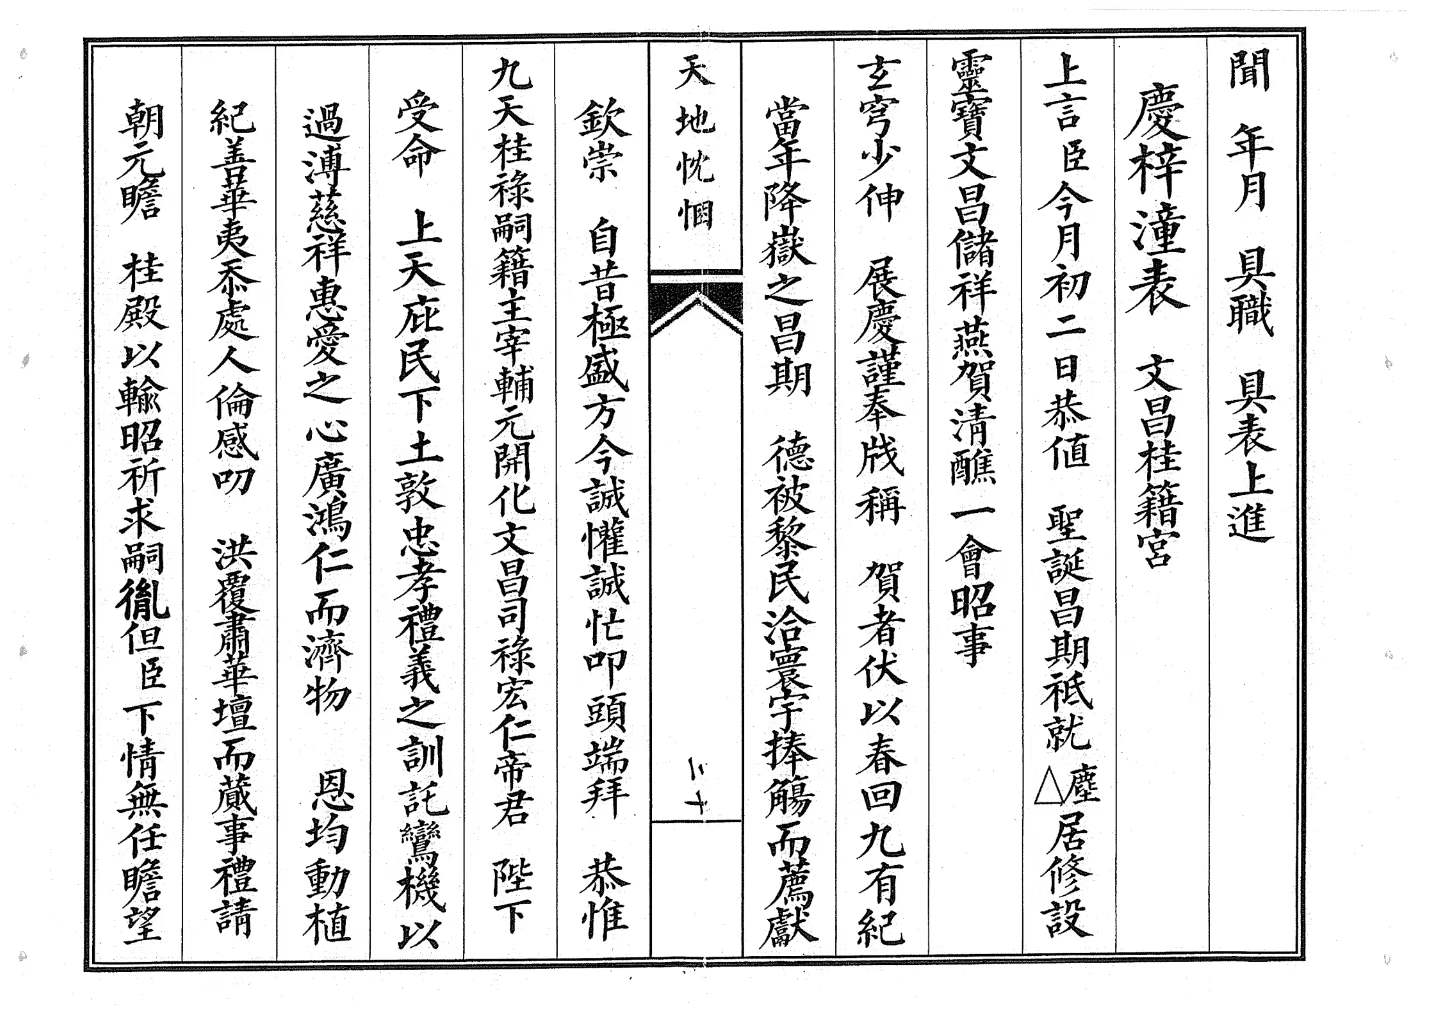 聞　年月　具職　具表上進
慶梓潼表　文昌桂籍宮
上言臣今月初二日恭値　聖誕昌期祇就△塵居修設
靈寶文昌儲祥燕賀清醮一會昭事
玄穹少伸　展慶謹奉牋稱　賀者伏以春回九有紀
當年降嶽之昌期　德被黎民洽寰宇捧觴而薦獻
天地忱悃
二十
欽崇　自昔極盛方今誠懽誠忙叩頭端拜　恭惟
九天桂祿嗣籍主宰輔元開化文昌司祿宏仁帝君　陛下
受命　上天庇民下土敦忠孝禮義之訓託鸞機以
過溥慈祥惠愛之心廣鴻仁而濟物　恩均動植
紀善華夷忝處人倫感叨　洪覆肅華壇而蕆事禮請
朝元瞻　桂殿以輸昭祈求嗣胤但臣下情無任瞻望